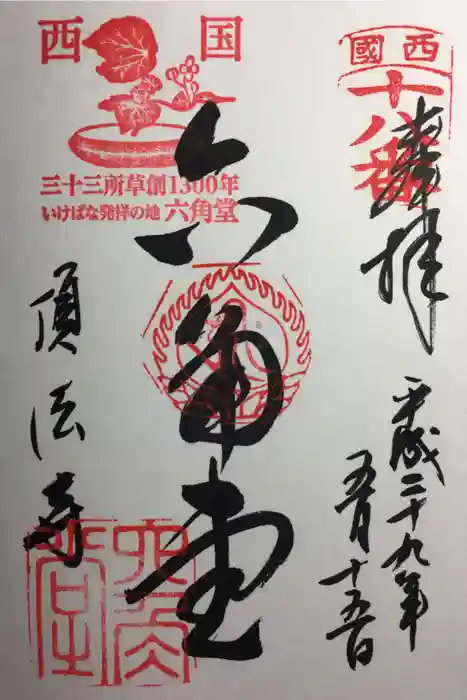 西國
十八番
奉拝
平成二十九年
五月十五日
西国
三十三所草創1300年
いけばな発祥の地 六角堂
六角堂
頂法寺
六角堂